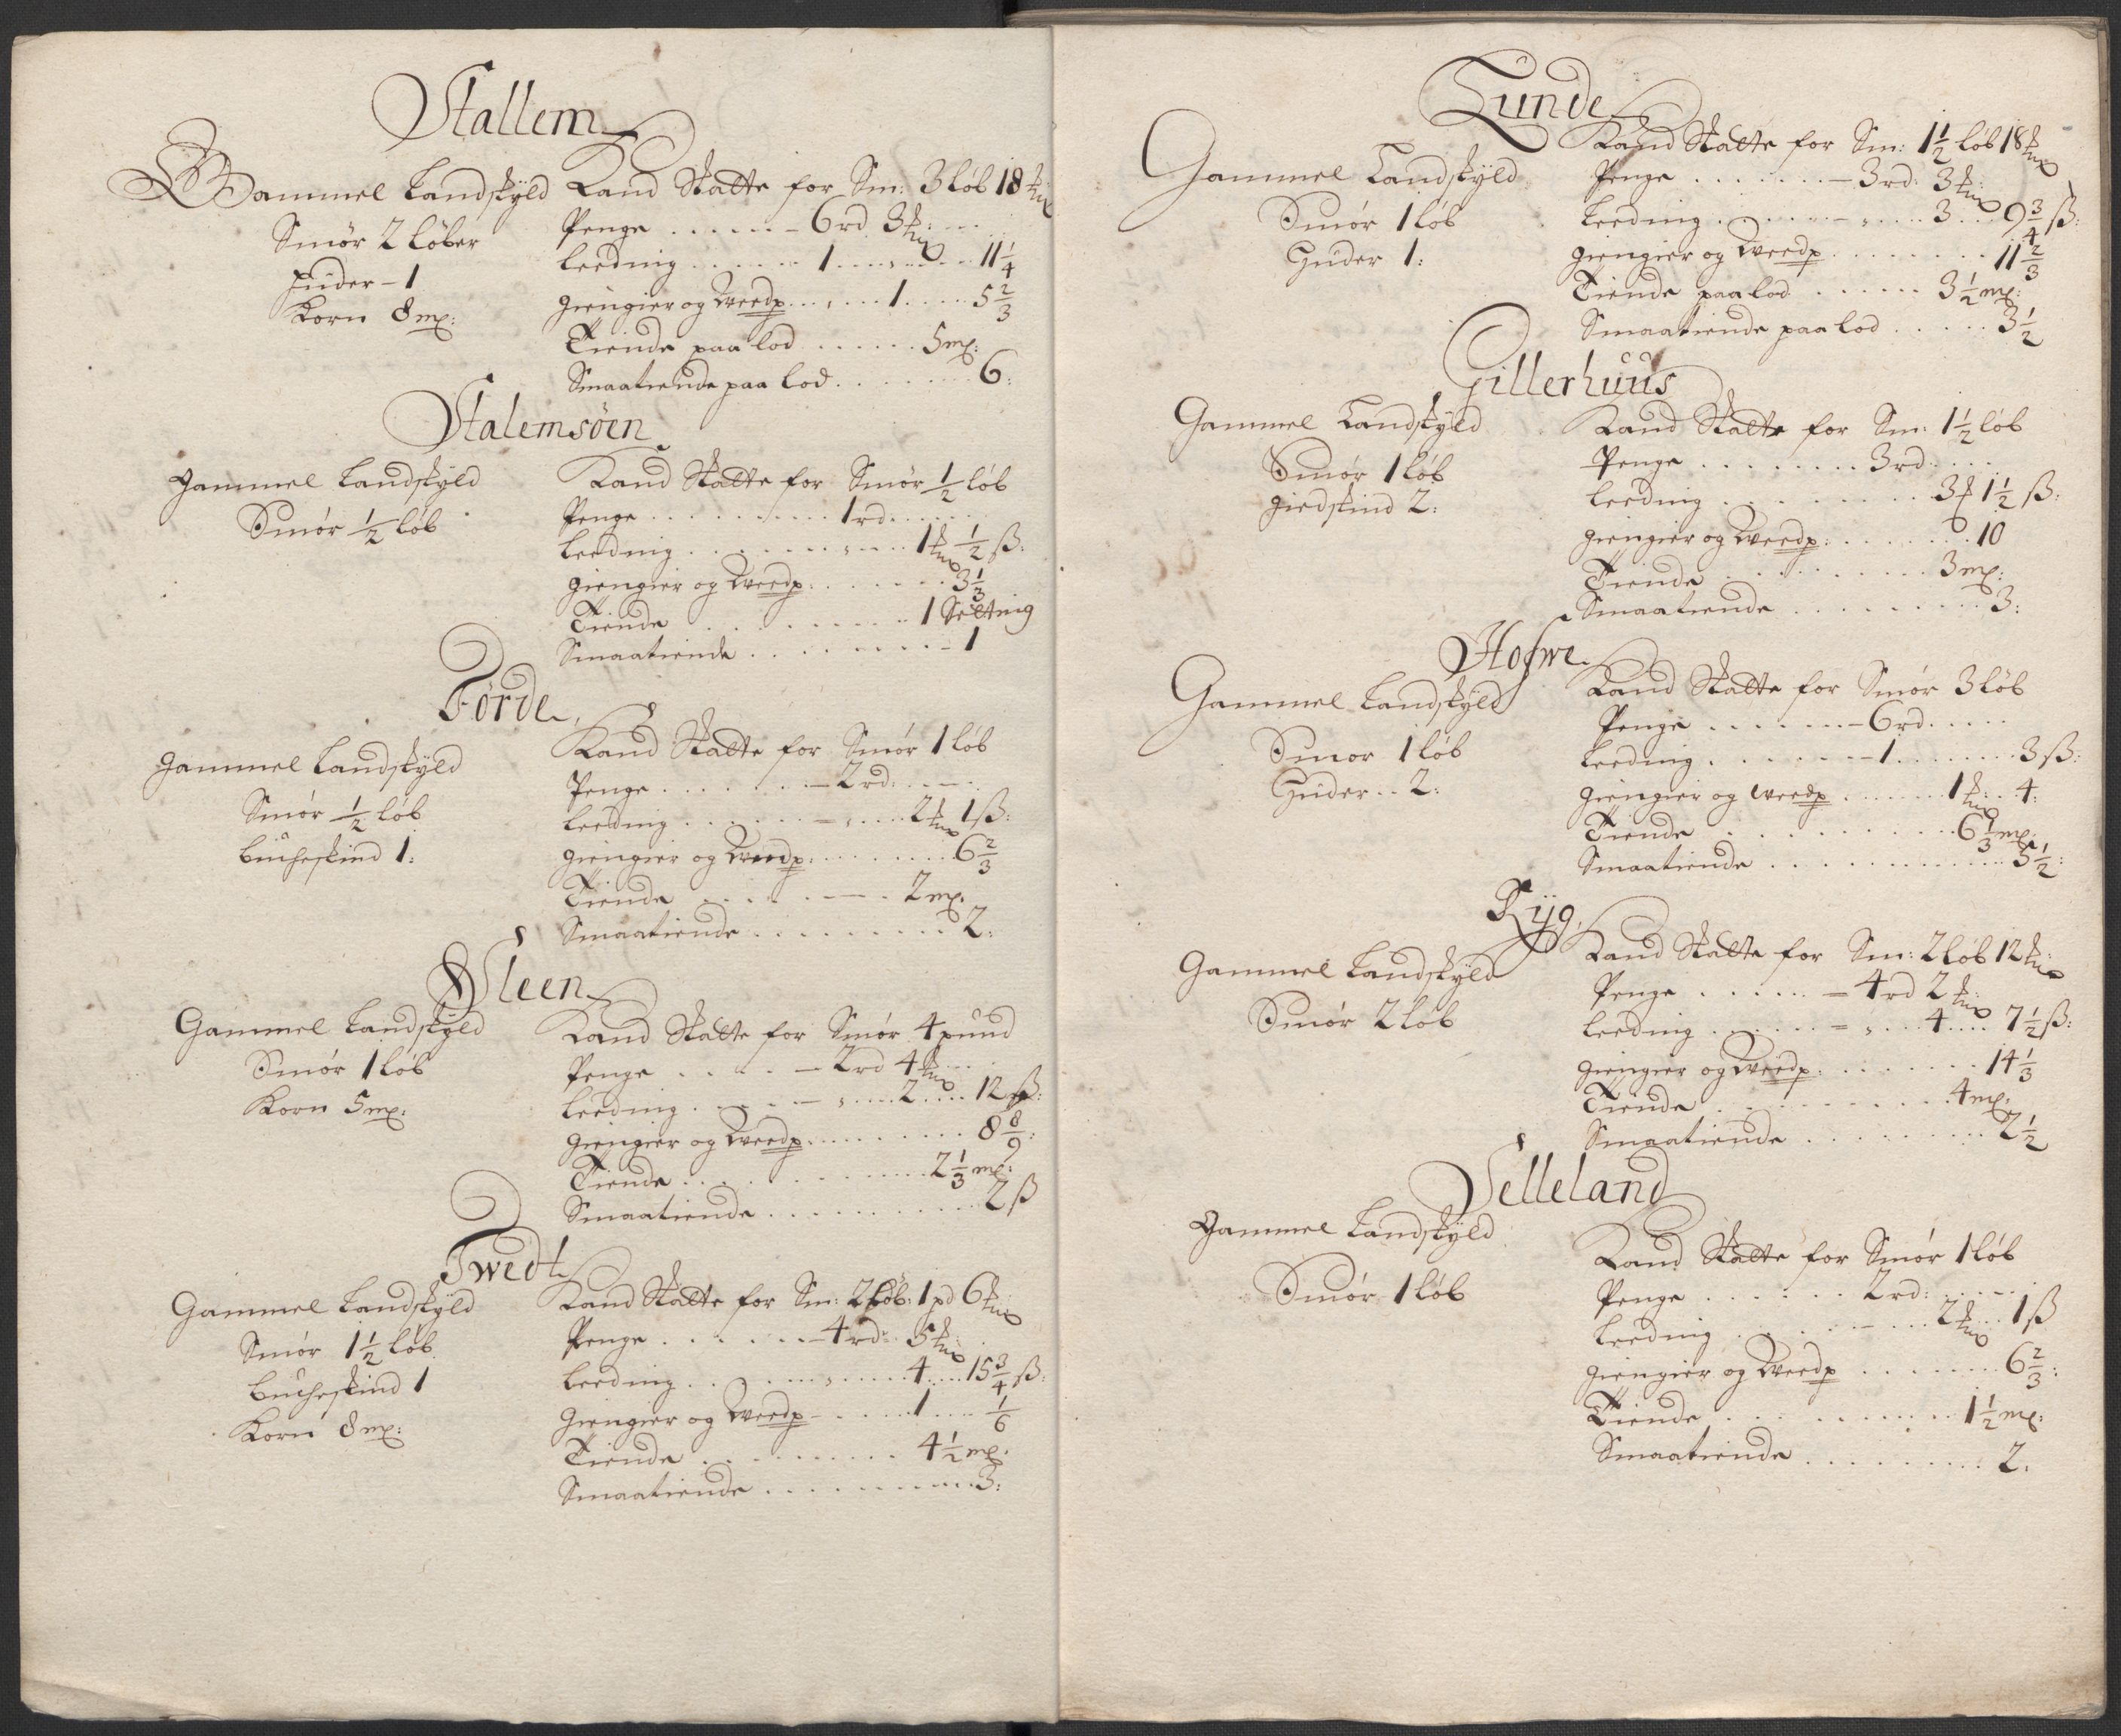 Stallem
Gammel Landskyld
Smør 2 løber
Huder - 1
Korn 8 mp:
Kand Skatte for Sm: 3 løb 18 mk
Penge . . . . . . - 6 rd 3 mk
Leeding . . . . . . 1 . . . . . . . 11 1/4
giengier og Weedp . . . . . 1 . . . . . 5 2/3
Tiende paa lod . . . . . . 5 mp:
Smaatiende paa lod . . . . . . . 6:
Stalemsöen
Gammel Landskyld
Smør 1/2 løb
Kand Skatte for Smør 1/2 løb
Penge . . . . . . . . . 1 rd . . . . .
Leeding . . . . . . . . . . 1 mk 1/2 ß:
giengier og Weedp . . . . . . . 3 1/3
Tiende . . . . . . . . . . 1 Setting
Smaatiende . . . . . . . . - 1
Förde
Gammel Landskyld
Smør 1/2 løb
Bucheskind 1:
Kand Skatte for Smør 1 løb
Penge . . . . . . . - 2 rd: . . . .
Leeding . . . . . . - . . . . . 2 mk 1 ß:
giengier og Weedp: . . . . . . . . 6 2/3
Tiende . . . . . . - - . 2 mp.
Smaatiende . . . . . . . . . 2:
Steen
Gammel Landskyld
Smør 1 løb
Korn 5 mp:
Kand Skatte for Smør 4 pund
Penge . . . . . - 2 rd 4 mk . . .
Leeding . . . . . - . . . . . 2 . . . . 12 ß:
giengier og Weedp . . . . . . . . . 8 8/9:
Tiende . . . . . . . . . . . 2 1/3 mp:
Smaatiende . . . . . . . . . . . 2 ß
Twedt
Gammel Landskyld
Smør 1 1/2 løb
Bucheskind 1
Korn 8 mp:
Kand Skatte for Sm: 2 løb: 1 pd 6 mk
Penge . . . . . . - 4 rd: 5 mk
Leeding . . . . . . . . . . . . 4 . . . . 15 3/4 ß:
Giengier og Weedp - . . . . . 1 . . . 1/6
Tiende . . . . . . . . . . 4 1/2 mp:
Smaatiende . . . . . . . . . . . 3:
Lunde
Gammel Landskyld
Smör 1 løb
Huder 1:
Kand Skatte for Sm: 1 1/2 løb 18 mk
Penge . . . . . . . - 3 rd: 3 mk
Leeding . . . . . . - . . . . . 3 . . . 9 3/4 ß:
giengier og Weedp . . . . . . . . 11 2/3
Tiende paa lod . . . . . . 3 1/2 mp:
Smaatiende paa lod . . . . . 3 1/2
Gillerhuus
Gammel Landskyld
Smör 1 løb
giedskind 2:
Kand Skatte for Sm: 1 1/2 løb
Penge . . . . . . . . 3 rd: . . . .
Leeding . . . . . . . . . . 3 mk 1 1/2 ß:
giengier og Weedp: . . . . . . . 10
Tiende . . . . . . . . . . 3 mp:
Smaatiende . . . . . . . . . 3:
Hofwe
Gammel Landskyld
Smör 1 løb
Huder . . 2:
Kand Skatte for Smör 3 löb
Penge . . . . . . . - 6 rd . . . . .
Leeding . . . . . . . - 1 . . . . . . . . 3 ß:
giengier og Weedp . . . . . . 1 mk . 4:
Tiende . . . . . . . . . . . 6 1/3 mp:
Smaatiende . . . . . . . . . . . . 5 1/2:
Ryg
Gammel Landskyld
Smör 2 løb
Kand Skatte for Sm: 2 løb 12 mk
Penge . . . . . = 4 rd 2 mk
Leeding . . . . . . = . . . 4 . . . . 7 1/2 ß:
giengier og Weedp . . . . . . . . 14 1/3
Tiende . . . . . . . . . . . 4 mp:
Smaatiende . . . . . . . . . 2 1/2
Selleland
Gammel Landskyld
Smör 1 løb
Kand Skatte for Smör 1 løb
Penge . . . . . . . 2 rd: . . . . .
Leeding . . . . . - . . . 2 mk . . 1 ß
giengier og Weedp . . . . . . . 6 2/3:
Tiende . . . . . . . . . . . 1 1/2 mp:
Smaatiende . . . . . . . . . 2.